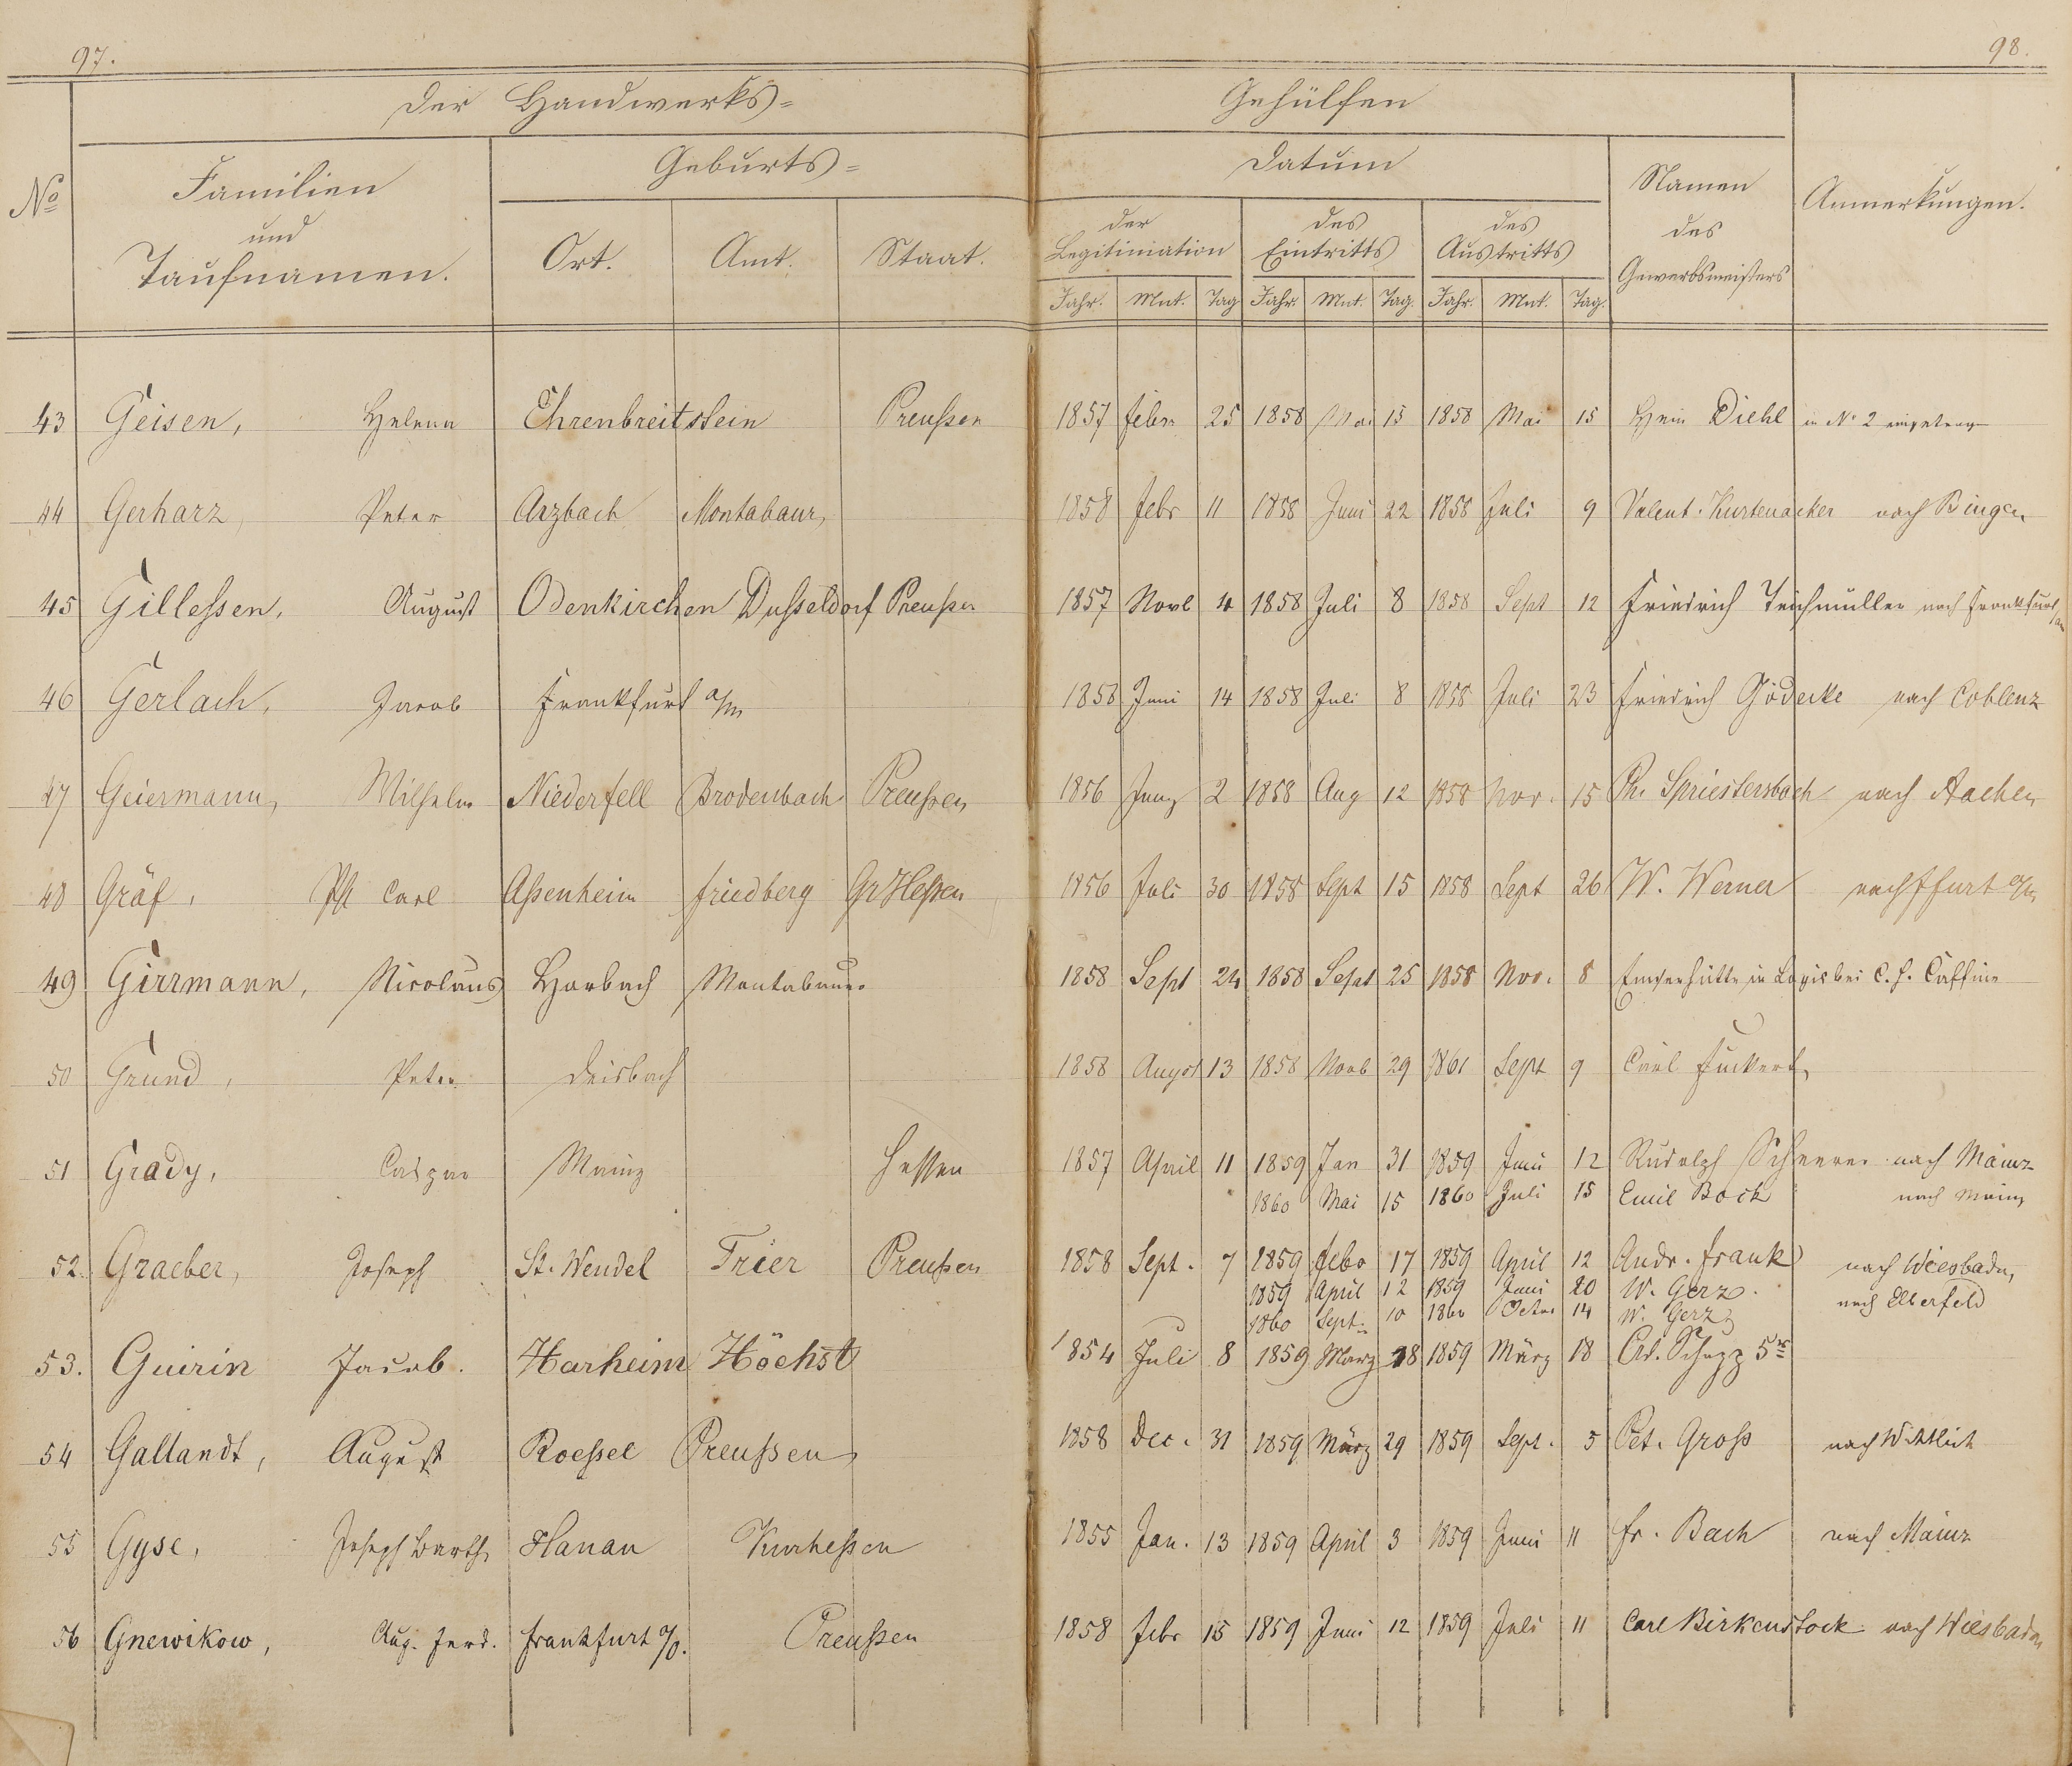 97.
98.
Der Handwerks=
Gehülfen
No
Familien
und
Taufnamen.
Geburts=
Ort. Amt. Staat.
Datum
der
Legitimation
des
Eintritts
des
Austritts
Jahr. Mnt. Tag Jahr. Mnt. Tag. Jahr. Mnt. Tag.
Namen
des
Gewerbsmeisters
Anmerkungen.
43 Geisen, Helena Ehrenbreitstein Preußen 1857 Febr 25 1858 Mai 15 1858 Mai 15 Diehl in No 2 eingetragen
44 Gerharz, Peter Arzbach Montabaur 1858 Febr 11 1858 Juni 22 1858 Juli 9 Valent. Kurtenacker nach Bingen
45 Gilleßen, August Odenkirchen Dußeldorf Preußen 1857 Novb 4 1858 Juli 8 1858 Sept 12 Friedrich Teichmüller nach Frankfurt
46 Gerlach, Jacob Frankfurt a/m 1858 Juni 14 1858 Juli 8 1858 Juli 23 Friedrich Gödecke nach Coblenz
47 Geiermann, Wilhelm Niederfell Brodenbach Preußen 1856 2 1858 Aug 12 1858 Nov. 15 Ph. Spriestersbach nach Aachen
48 Gräf, Ph Carl Aßenheim Friedberg Gr Heßen 1856 Juli 30 1858 Sept 15 1858 Sept 26 W. Werner nach Ffurt a/m
49 Girrmann, Nicolaus Horbach Montabaur 1858 Sept 24 1858 Sept 25 1858 Nov. 8 Emserhütte in Logis bei C. F.
50 Grund, Peter Deisbach 1858 Augst 13 1858 Novb 29 1861 Sept 9 Carl Fuckert
51 Grady, Caspar Mainz Hessen 1857 April 11 1859 Jan 31 1859 Juni 12 Rudolph Scheerer nach Mainz
1860 Mai 15 1860 Juli 15 Emil Bock nach Mainz
52. Graeber, Joseph St. Wendel Trier Preußen 1858 Sept. 7 1859 Febr 17 1859 April 12 Andr. Frank nach Wiesbaden,
1859 April 12 1859 Juni 20 W. Gerz.
1860 Sept. 10 1860 Octbr 14 W. Gerz nach Elberfeld
53. Guirin Jacob. Harheim Höchst 1854 Juli 8 1859 März 18 1859 März 18 Ad. Schupp 5r
54 Gallandt, August Roeßel Preußen 1858 Dec. 31 1859 März 29 1859 Sept. 5 Pet. Groß nach Wittlich
55 Gyse, Joseph Barth. Hanau Kurheßen 1855 Jan. 13 1859 April 3 1859 Juni 11 Fr. Bach nach Mainz
56 Gnewikow, Aug. Ferd. Frankfurt a/O. Preußen 1858 Febr 15 1859 Juni 12 1859 Juli 11 Carl Birkenstock nach Wiesbaden